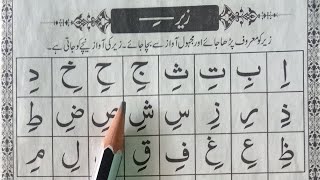 زیر ـِ
زیر کو معروف پڑھا جائے اور مجہول آواز سے بچا جائے۔ زیر کی آواز نیچے کو جاتی ہے۔
اِ بِ تِ ثِ جِ حِ خِ دِ
ذِ رِ زِ سِ شِ صِ ضِ طِ
ظِ عِ غِ فِ قِ لِ مِ